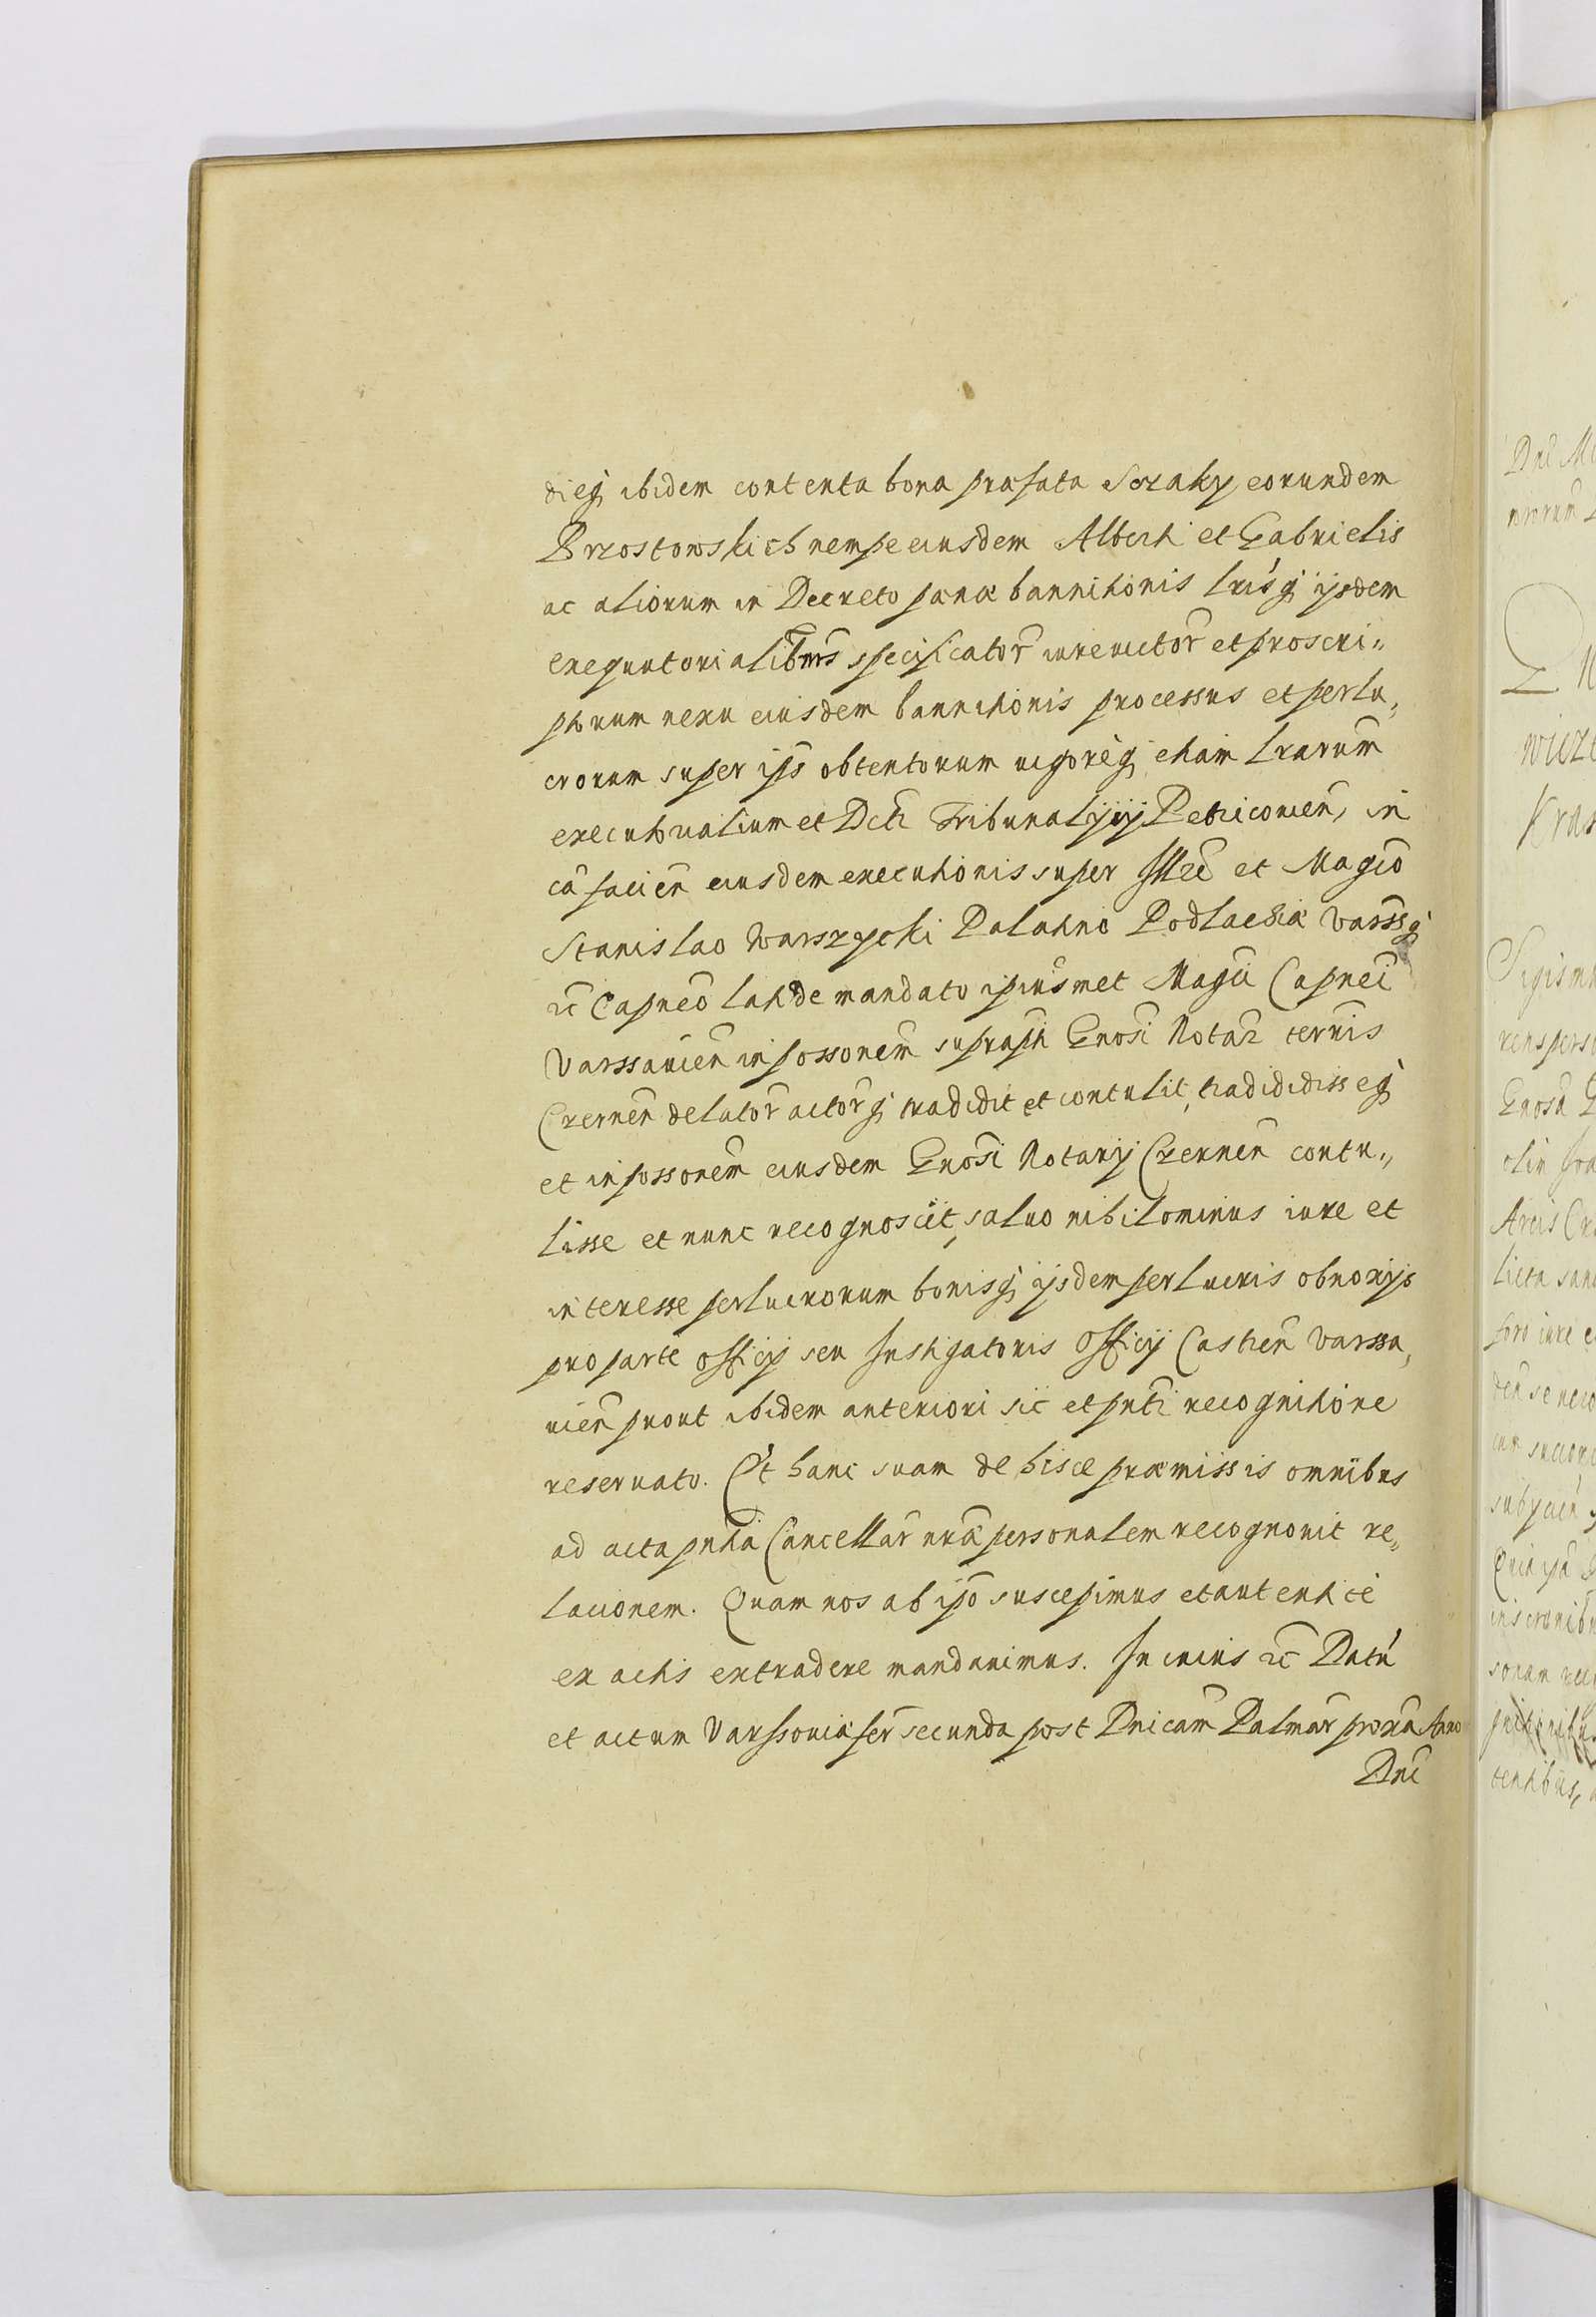 dieq ibidem contenta bona præfata Soraky eorundem
Brzostowskich nempe eiusdem Alberti et Gabrielis
ac aliorum in Decreto pænæ bannitionis lrisq ijsdem
exequutorialibus specificator iurevictor et proscri„
ptorum nexu eiusdem bannitionis processus et perlu„
crorum super ijs obtentorum vigoreq etiam lrarum
executorialium et Dcti Tribunalyij Petricovien, in
ca facien eiusdem executionis super Illri et Magco
Stanislao Warszycki Palatino Podlachiæ Varssq
ec Capneo lati de mandato ipiusmet Magci Capnei
Varssavien in possonem suprapti Gnosi Notar terris
Czernen delator actorq tradidit et contulit, tradididisseq
et in possonem eiusdem Gnosi Notarij Czernen contu„
lisse et nunc recognoscit, salvo nihilominus iure et
interesse perlucrorum bonisq ijsdem perlucris obnoxijs
pro parte officij seu Instigatoris Officij Castren Varssa„
vien prout ibidem anteriori sic et pnti recognitione
reservato. Et hanc suam de hisce præmissis omnibus
ad acta pntia Cancellar nræ personalem recognovit re„
lationem. Quam nos ab ipo suscepimus et autentice
ex actis extradere mandavimus. In cuius ec Datu
et actum Varssoviæ fer secunda post Dnicam Palmar proxa Anno
Dni